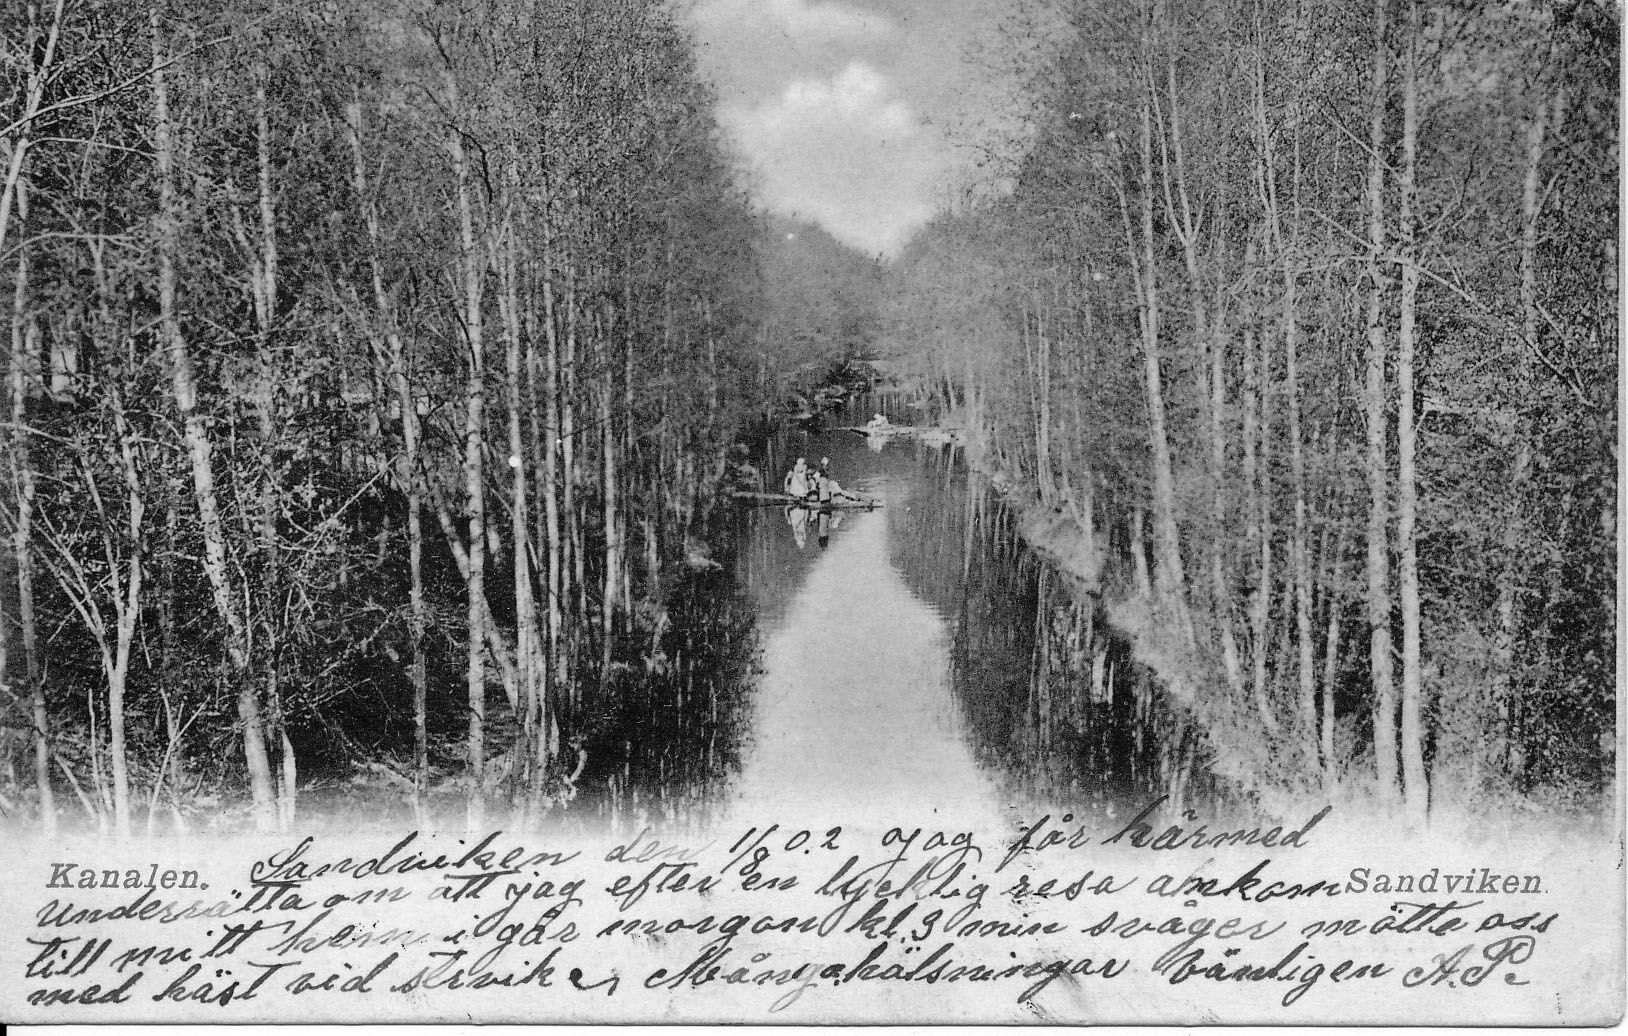 Sandviken den 1/8 0.2 jag får härmed
Kanalen. Sandviken
Underrätta om att jag efter en lycklig resa ankom
till mitt hem i går morgon kl. 3 min svåger mötte oss
med häst vid Många hälsningar Vänligen A.P.